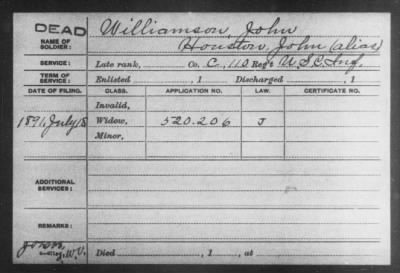 DEAD
NAME OF SOLDIER:
Williamson, John
Houston, John (alias)
SERVICE: Late rank, Co. C, 110 Reg't U.S.C. Inf.
TERM OF SERVICE: Enlisted , 1 Discharged , 1
DATE OF FILING. CLASS. APPLICATION NO. LAW. CERTIFICATE NO.
Invalid,
1891, July 18 Widow, 520.206 J
Minor,
ADDITIONAL SERVICES:
REMARKS:
Died , 1 , at